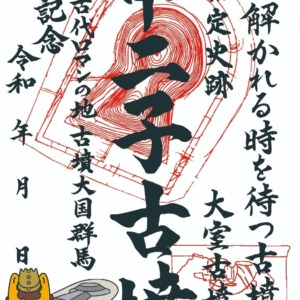 解かれる時を待つ古墳
定史跡
大室古墳
二子古墳
古代ロマンの地古墳大国群馬
記念
令和 年 月 日